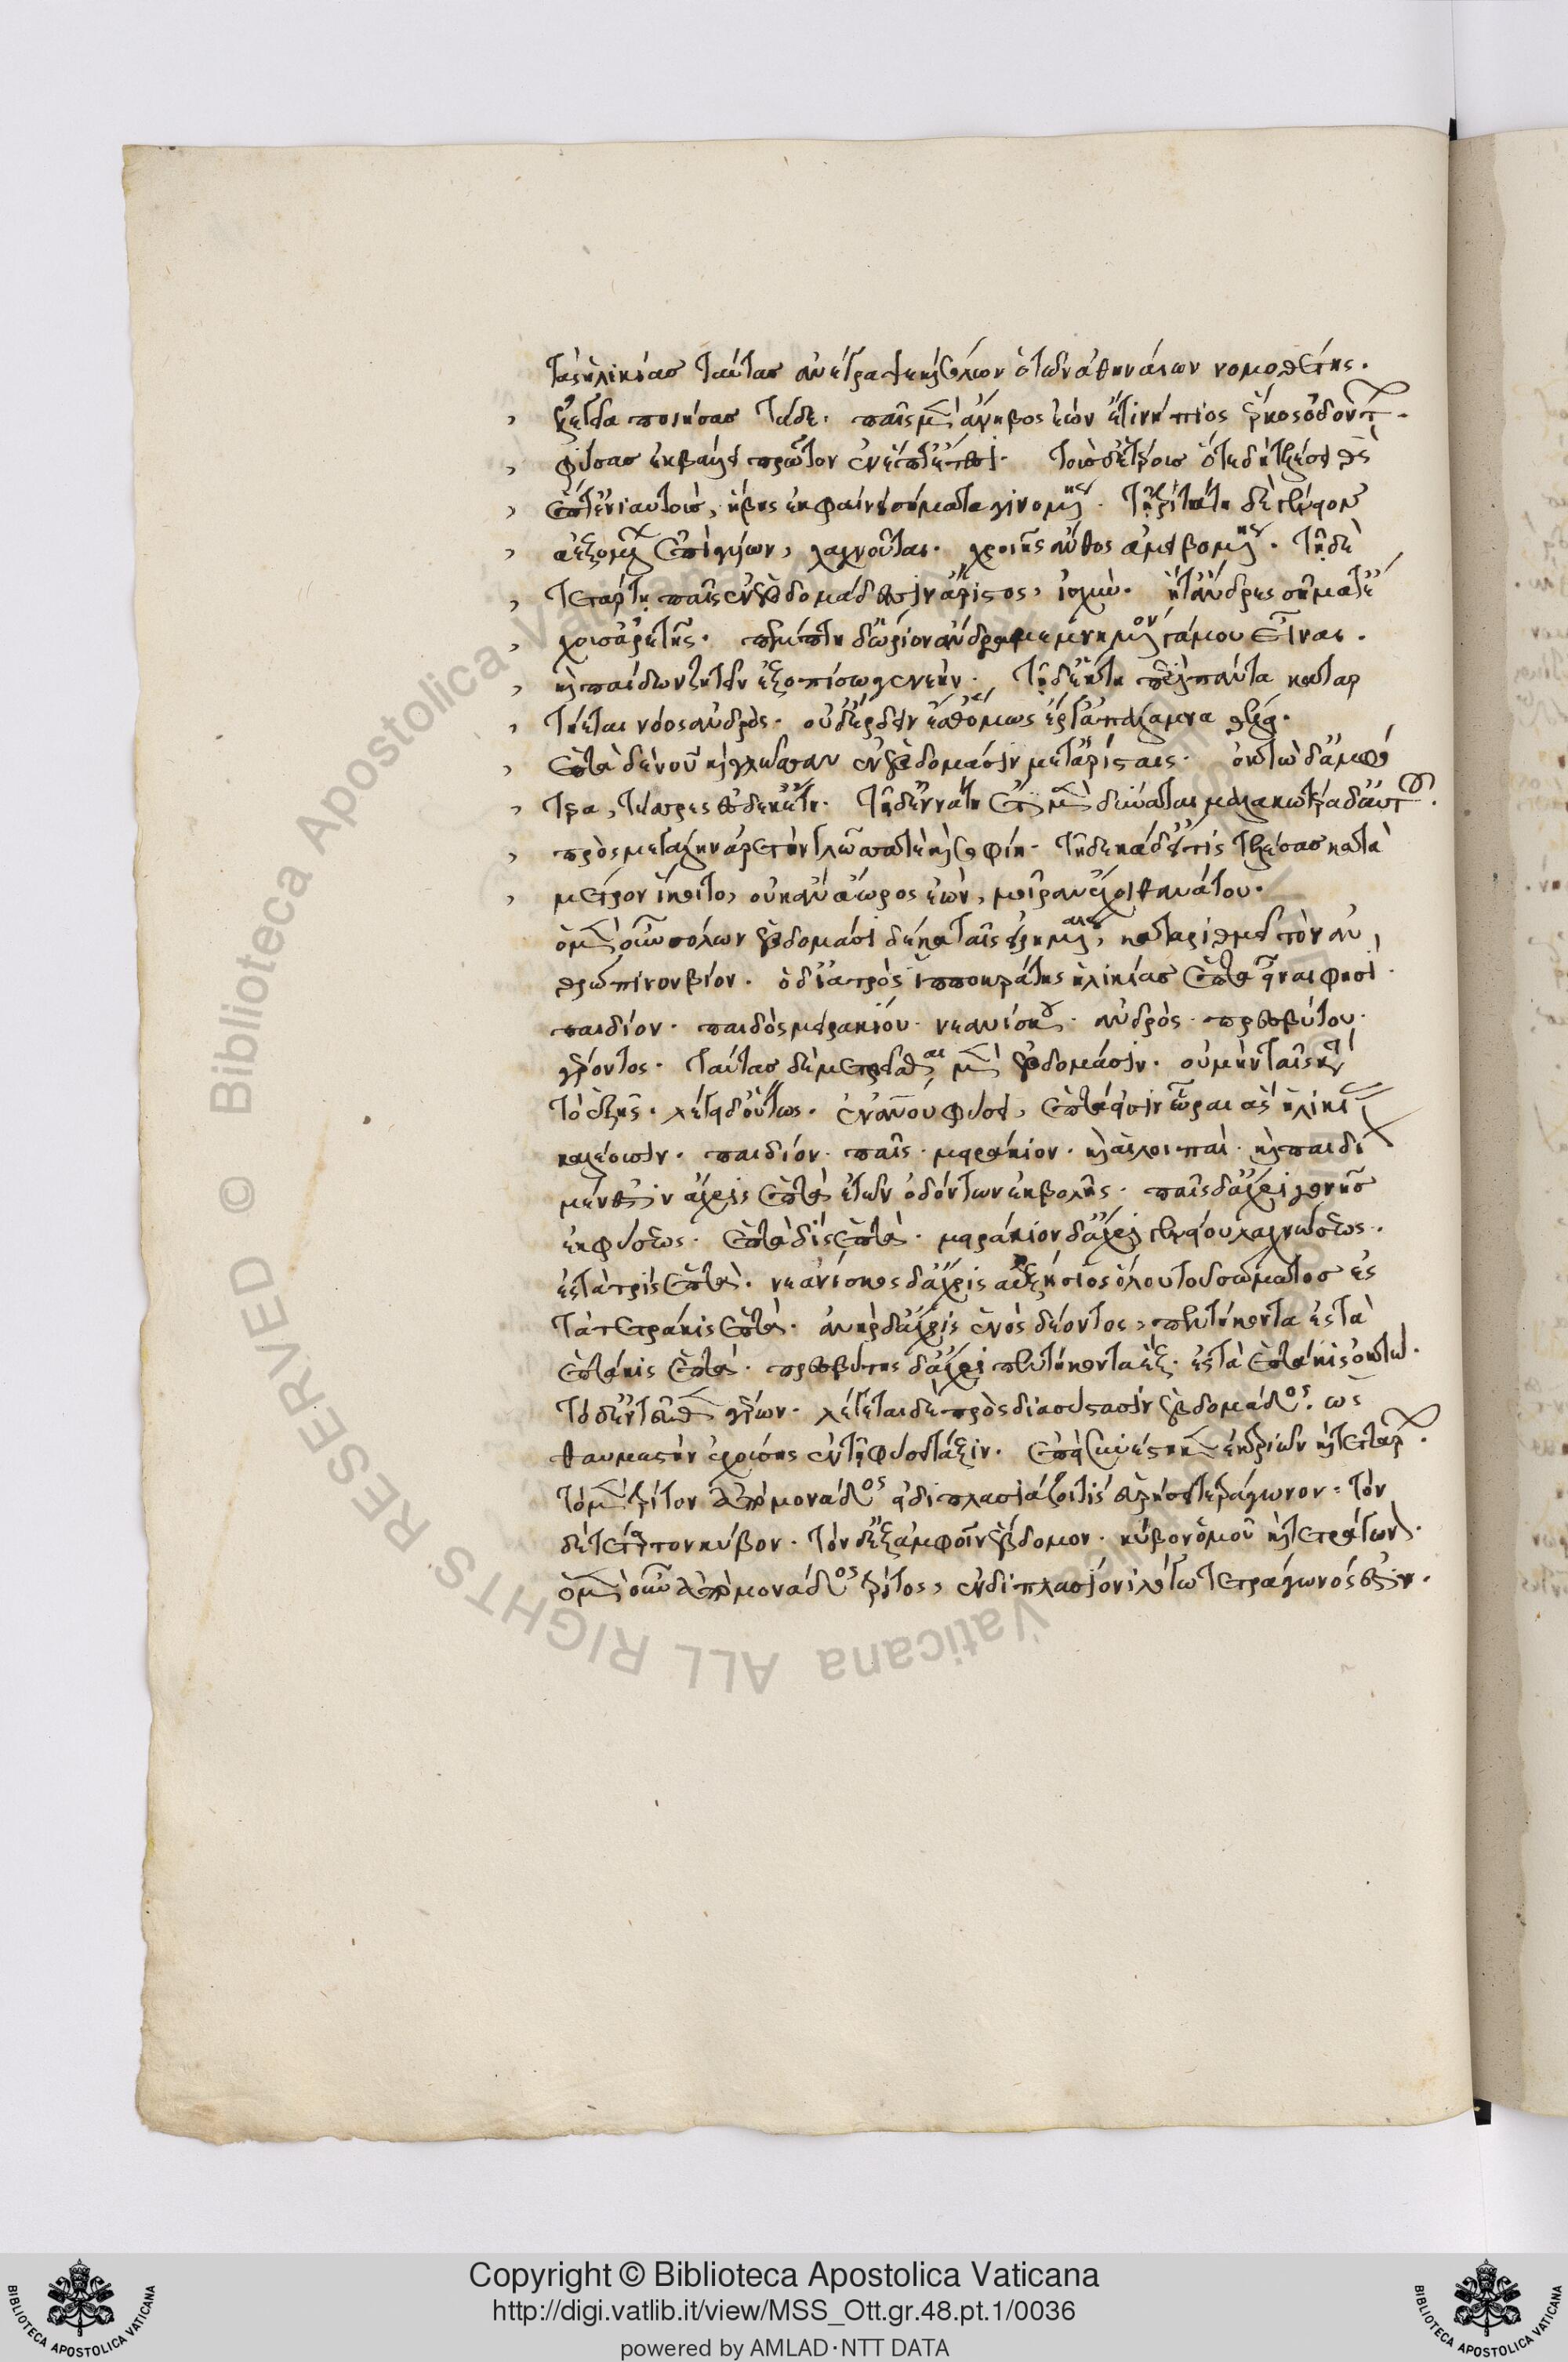 τὰς ἡλικίας ταύτας ἀνέγραψε καὶ σόλων ὁ τῶν ἀθηναίων νομοθέτης.
ἐλεγεῖα ποιήσας τάδε. παῖς μὲν ἄνηβος ἐὼν ἔτι νήπιος ἕρκος ὀδόντων.
φύσας ἐκβάλλει πρῶτον ἐν ἕπτ' ἔτεσι. τοὺς δ' ἑτέρους ὅτε δὴ τελέσει θεὸς
ἕπτ' ἐνιαυτοὺς, ἥβης ἐκφαίνει σήματα γινομένης. τῇ τριτάτῃ δὲ γένειον
ἀεξομένων ἐπὶ γυίων, λαχνοῦται. χροιῆς ἄνθος ἀμειβομένης. τῇ δὲ
τετάρτῃ παῖς ἐν ἑβδομάδεσσιν ἄριστος, ἰσχύν. ἥτ' ἄνδρες σήματ' ἔ
χουσ' ἀρετῆς. πέμπτῃ δ' ὥριον ἄνδρα μεμνημένον γάμου εἶναι.
καὶ παίδων ζητεῖν ἐξοπίσω γενεήν. τῇ δ' ἕκτῃ περὶ πάντα καταρ
τύεται νόος ἀνδρὸς. οὐδ' ἔρδειν ἔθ' ὁμῶς ἔργ' ἀπάλαμνα θέλει.
ἑπτὰ δὲ νοῦν καὶ γλῶσσαν ἐν ἑβδομάσιν μέγ' ἄριστος. ὀκτὼ δ' ἀμφο
τέρα, τέσσαρες καὶ δέκ' ἔτη. τῇ δ' ἐννάτῃ ἔτι μὲν δύναται μαλακώτερα δ' αὐτοῦ.
πρὸς μεγάλην ἀρετὴν γλῶσσά τε καὶ σοφίη. τῇ δεκάδι δ' εἴ τις τελέσας κατὰ
μέτρον ἵκοιτο, οὐκ ἂν ἄωρος ἐὼν, μοῖραν ἔχοι θανάτου.
ὁ μὲν οὖν σόλων ἑβδομάσι δέκα ταῖς εἰρημέναις, καταριθμεῖ τὸν ἀν
θρώπινον βίον. ὁ δ' ἰατρὸς ἱπποκράτης ἡλικίας ἑπτὰ εἶναι φησὶ.
παιδίον. παιδὸς μειρακίου. νεανίσκου. ἀνδρὸς. πρεσβύτου.
γέροντος. ταύτας δὲ μετρεῖσθαι μὲν ἑβδομάσιν. οὐ μὴν ταῖς κατὰ
τὸ ἑξῆς. λέγει δ' οὕτως. ἐν ἀνθρώπου φύσει, ἑπτά εἰσιν ὧραι ἃς ἡλικίας
καλέουσιν. παιδίον. παῖς. μειράκιον. καὶ αἱ λοιπαὶ. καὶ παιδί
μέν ἐστιν ἄχρις ἑπτὰ ἐτῶν ὀδόντων ἐκβολῆς. παῖς δ' ἄχρι γονῆς
ἐκφύσεως. ἑπτὰ δὶς ἑπτὰ. μειράκιον δ' ἄχρι γενείου λαχνώσεως.
ἐς τὰ τρὶς ἑπτὰ. νεανίσκος δ' ἄχρις αὐξήσιος ὅλου τοῦ σώματος ἐς
τὰ τετράκις ἑπτά. ἀνὴρ δ' ἄχρις ἑνὸς δέοντος, πεντήκοντα ἐς τὰ
ἑπτάκις ἑπτά. πρεσβύτης δ' ἄχρι πεντήκοντα ἓξ. ἐς τὰ ἑπτάκις ὀκτώ.
τὸ δ' ἐντεῦθεν γέρων. λέγεται δὲ πρὸς διασύστασιν ἑβδομάδος. ὡς
θαυμαστὴν ἐχούσης ἐν τῇ φύσει τάξιν. ἐπεὶ συνέστηκεν ἐκ τριῶν καὶ τετάρων.
τὸ μὲν τρίτον ἀπὸ μονάδος εἰ διπλασιάζοι τὶς εὑρήσει τετράγωνον. τὸν
δὲ τέταρτον κύβον. τὸν δ' ἐξ ἀμφοῖν ἕβδομον. κύβον ὁμοῦ καὶ τετράγωνον.
ὁ μὲν οὖν ἀπὸ μονάδος τρίτος, ἐν διπλασίονι λόγῳ τετράγωνός ἐστιν.
Copyright © Biblioteca Apostolica Vaticana
http://digi.vatlib.it/view/MSS_Ott.gr.48.pt.1/0036
powered by AMLAD·NTT DATA